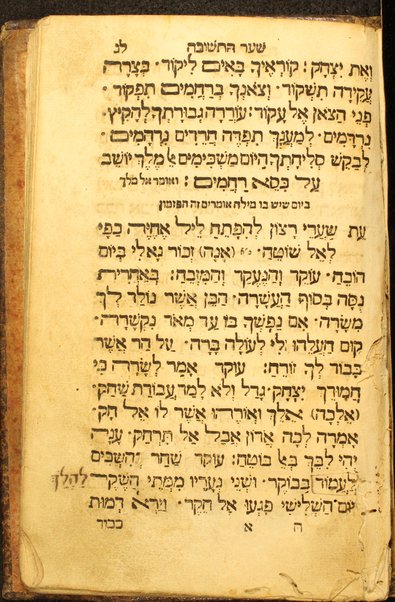 שער התשובה לג
וְאֶת יִצְחָק׃ קוֹרְאֶיךָ בָּאִים לִיקוֹד׃ בְּצָרָה
עֲקֵידָה תִשְׁקוֹד׃ וְצֹאנְךָ בְּרַחֲמִים תִּפְקוֹד׃
פְּנֵי הַצֹּאן אֶל עָקוֹד׃ עוֹרְרָה גְבוּרָתְךָ לְהָקִיץ
נִרְדָּמִים׃ לְמַעֲנְךָ תִּפְדֶּה חֲרֵדִים נִרְדָּמִים׃
לְבַקֵּשׁ סְלִיחָתְךָ הַיּוֹם מַשְׁכִּימִים אֵל מֶלֶךְ יוֹשֵׁב
עַל כִּסֵּא רַחֲמִים׃ ואומר אל מלך
ביום שיש בו מילה אומרים זה הפזמון
עֵת שַׁעֲרֵי רָצוֹן לְהִפָּתֵחַ לֵיל אֶהְיֶה כַפַּי
לְאֵל שׁוֹטֵחַ׃ (אָנָּא) זְכוֹר נָא לִי בְּיוֹם
הוֹכֵחַ׃ עוֹקֵד וְהַנֶּעֱקָד וְהַמִּזְבֵּחַ׃ בְּאַחֲרִית
נִסָּה בְּסוֹף הָעֲשָׂרָה׃ הַבֵּן אֲשֶׁר נוֹלַד לְךָ
מִשָּׂרָה׃ אִם נַפְשְׁךָ בּוֹ עַד מְאֹד נִקְשְׁרָה׃
קוּם הַעֲלֵהוּ לִי לְעוֹלָה בָּרָה׃ עַל הַר אֲשֶׁר
כָּבוֹד לְךָ זוֹרֵחַ׃ עוקד אָמַר לְשָׂרָה כִּי
חֲמוּדֵךְ יִצְחָק׃ גָּדַל וְלֹא לָמַד עֲבוֹדַת שַׁחַק׃
(אֵלְכָה) אֵלֵךְ וְאוֹרֵהוּ אֲשֶׁר לוֹ אֵל חָק׃
אָמְרָה לְכָה אָדוֹן אֲבָל אַל תִּרְחַק׃ עָנָהּ
יְהִי לִבֵּךְ בְּאֵל בּוֹטֵחַ׃ עוקד שַׁחַר וְהִשְׁכִּים
לַעֲמוֹד בַּבּוֹקֶר׃ וּשְׁנֵי נְעָרָיו מִמְּתֵי הַשֶּׁקֶר׃ להלך
יוֹם הַשְּׁלִישִׁי פָּגְעוּ אֶל חֵקֶר׃ וַיַּרְא דְּמוּת
ה א כבוד